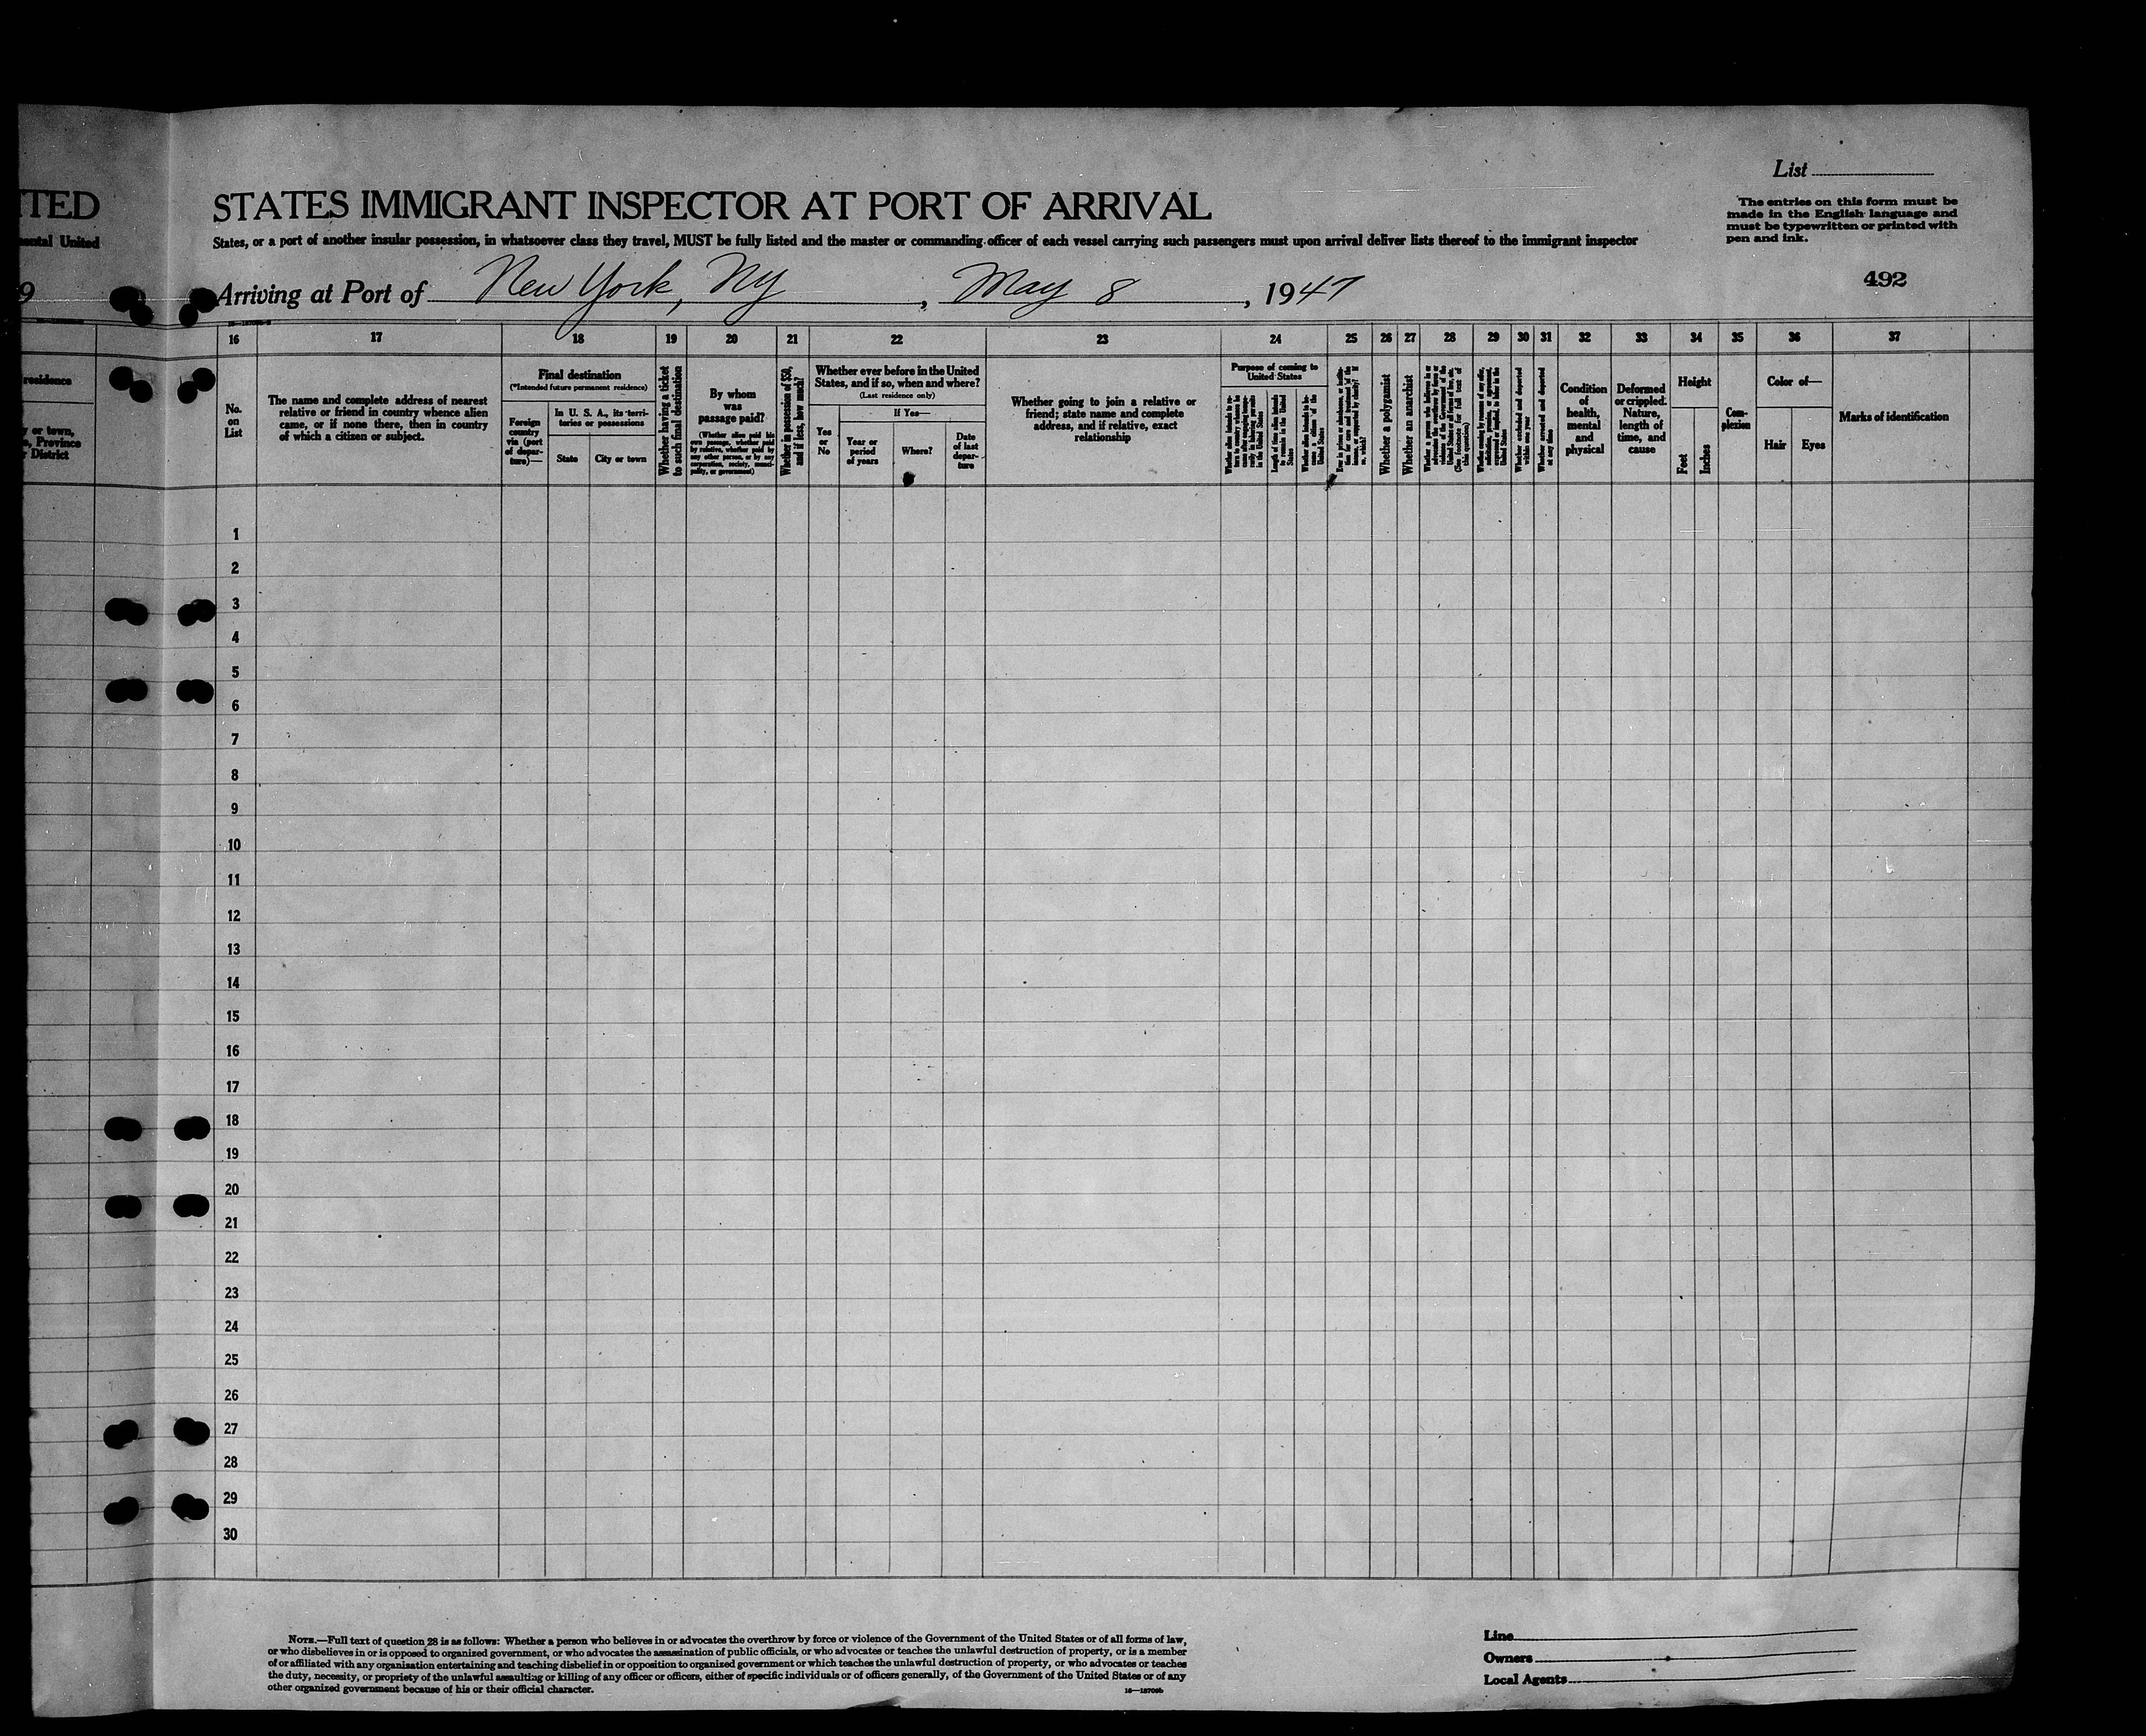 List
ITED
STATES IMMIGRANT INSPECTOR AT PORT OF ARRIVAL
The entries on this form must be
made in the English language and
must be typewritten or printed with
pen and ink.
United
States, or a port of another insular possession, in whatsoever class they travel, MUST be fully listed and the master or commanding officer of each vessel carrying such passengers must upon arrival deliver lists thereof to the immigrant inspector
9
Arriving at Port of New York, Ny, May 8, 1947
492
16 17 18 19 20 21 22 23 24 25 26 27 28 29 30 31 32 33 34 35 36 37
residence
y or town,
Province
District
No.
on
List
The name and complete address of nearest
relative or friend in country whence alien
came, or if none there, then in country
of which a citizen or subject.
Final destination
(*Intended future permanent residence)
Foreign
country
via (port
of depar-
ture)—
In U. S. A., its terri-
tories or possessions
State
City or town
Whether having a ticket
to such final destination
By whom
was
passage paid?
(Whether alien paid his
own passage, whether paid
by relative, whether paid by
any other person, or by any
corporation, society, munici-
pality, or government)
Whether in possession of $50,
and if less, how much?
Whether ever before in the United
States, and if so, when and where?
(Last residence only)
Yes
or
No
If Yes—
Year or
period
of years
Where?
Date
of last
depar-
ture
Whether going to join a relative or
friend; state name and complete
address, and if relative, exact
relationship
Purpose of coming to
United States
Length of time alien intends
to remain in the United
States
Whether a polygamist
Whether an anarchist
Whether excluded and deported
within one year
Whether arrested and deported
at any time
Condition
of
health,
mental
and
physical
Deformed
or crippled.
Nature,
length of
time, and
cause
Height
Feet
Inches
Com-
plexion
Color of—
Hair
Eyes
Marks of identification
1
2
3
4
5
6
7
8
9
10
11
12
13
14
15
16
17
18
19
20
21
22
23
24
25
26
27
28
29
30
NOTE.—Full text of question 28 is as follows: Whether a person who believes in or advocates the overthrow by force or violence of the Government of the United States or of all forms of law,
or who disbelieves in or is opposed to organized government, or who advocates the assassination of public officials, or who advocates or teaches the unlawful destruction of property, or is a member
of or affiliated with any organization entertaining and teaching disbelief in or opposition to organized government or which teaches the unlawful destruction of property, or who advocates or teaches
the duty, necessity, or propriety of the unlawful assaulting or killing of any officer or officers, either of specific individuals or of officers generally, of the Government of the United States or of any
other organized government because of his or their official character.
Line
Owners
Local Agents